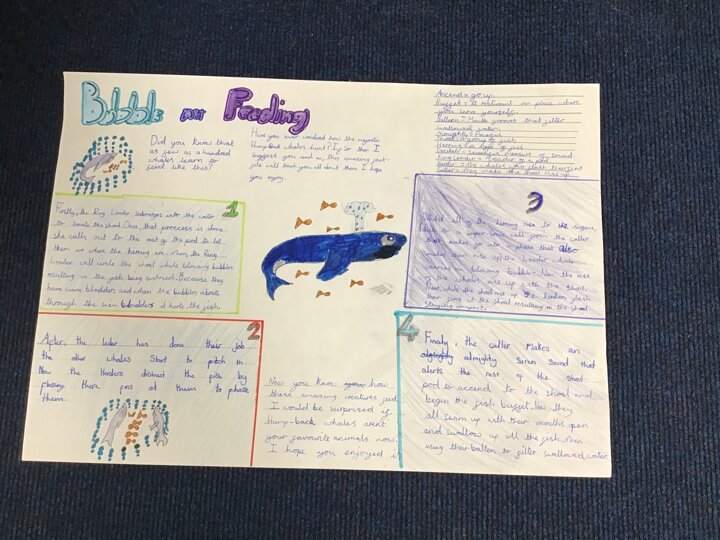 Bubble net Feeding
Did you know that
as few as a hundred
whales learn to
feed like this!
Have you ever wondred how the majestic
Hump-Back whales hunt? If so then I
suggest you read on, this amazing
will teach you all about them I hope
you enjoy.
Accend = go up.
Buffet = A resturant or place where
you serve yourself.
Balleen = Mouth grooves that filter
swallowed water.
Shoal = A group of fish
Herring = a type of fish
Decibels = scientific measure of sound
Ring Leader = leader of a pod
caller = they make the shoal rise up.
1
Firstly, the Ring Leader submerges into the water
to locate the shoal. Once, that proccess is done,
she calls out to the rest of the pod to let
them know where the herring are. Then, the Ring
Leader will circle the shoal while blowing bubbles
resulting in the fish being enclosed. Because they
have swim bladders and when the bubbles vibrate
through the swim bladders it hurts the fish.
2
After, the leder has done their job
the other whales start to pitch in.
Now the Herders distract the fish by
there fins at them to
them.
3
Whilst all of the herring rise to the
due to a super sonic call from the caller
that makes go into a phase that
makes them rise up) the Leader while
blowing bubbles. Now the rest
of the whales rise up with the shoal.
while the shoal rise up the herders flash
their fins at the shoal resulting in the shoal
staying in
4
Finaly, the caller makes an
almighty siren sound that
alerts the rest of the
pod to accend to the shoal and
begin the fish buffet. Now they
all swim up with their mouths open
and swallow up all the fish then
using their balleen to filter swallowed water.
Now you know how
these amazing creatures feed
I would be surprised if
Hump-back whales arent
your favourite animals now.
I hope you enjoyed it